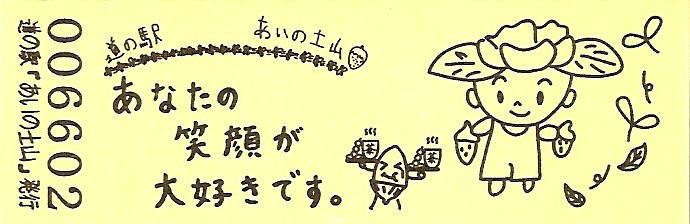 006602
道の駅「あいの土山」発行
道の駅 あいの土山
あなたの
笑顔が
大好きです。
茶
茶